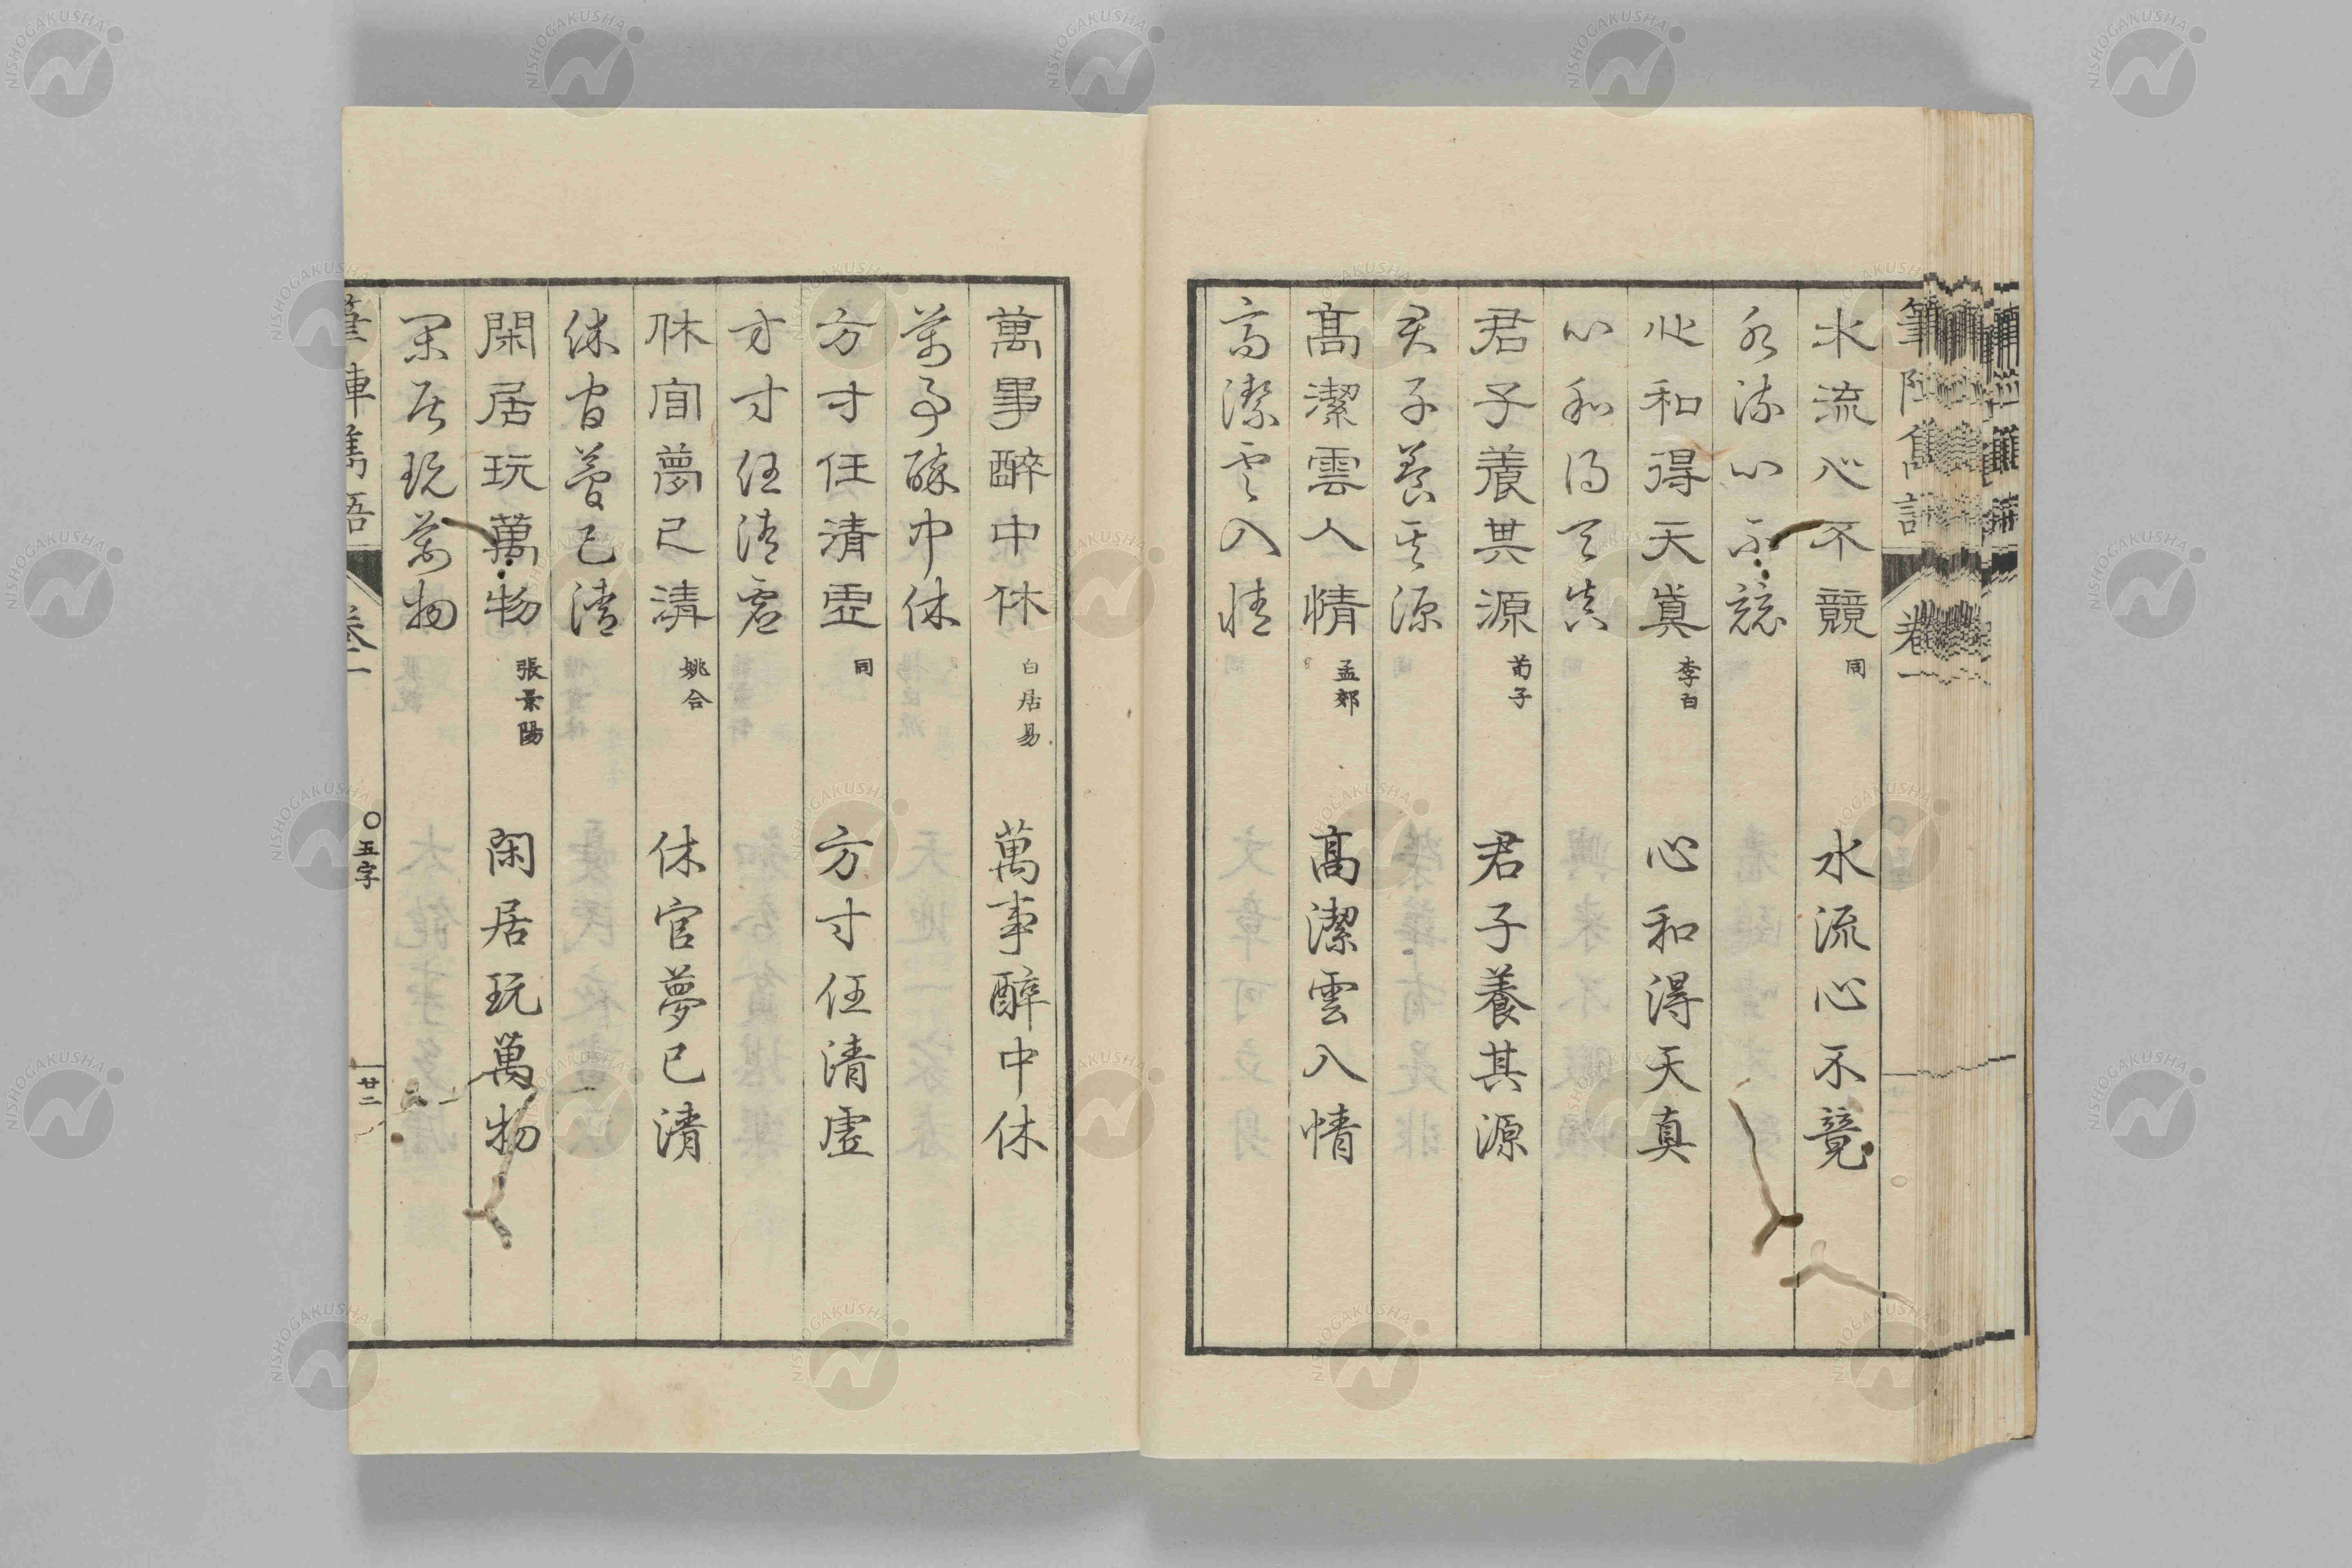 水流心不競 同 水流心不競
水流心不競
心和得天真 李白 心和得天真
心和得天真
君子養其源 荀子 君子養其源
君子養其源
高潔雲入情 孟郊 高潔雲入情
高潔雲入情
萬事醉中休 白居易 萬事醉中休
萬事醉中休
方寸任清虛 同 方寸任清虛
方寸任清虛
休官夢已清 姚合 休官夢已清
休官夢已清
閑居玩萬物 張景陽 閑居玩萬物
閑居玩萬物
筆陣雋語 卷一 〇五字 廿二
NISHOGAKUSHA